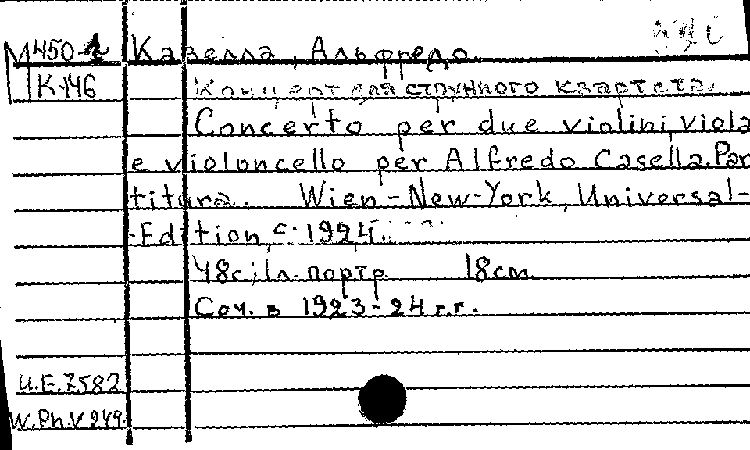 М450-2 Казелла, Альфредо.
К-146 Концерт для струнного квартета.
Concerto per due violini, viola
e violoncello per Alfredo Casella. Par-
titura. Wien-New-York, Universal-
-Edition, c. 1924.
48с; 1л. портр. 18cm.
Соч. в 1923-24 г.г.
U.E.7582
W.Ph.V 249.